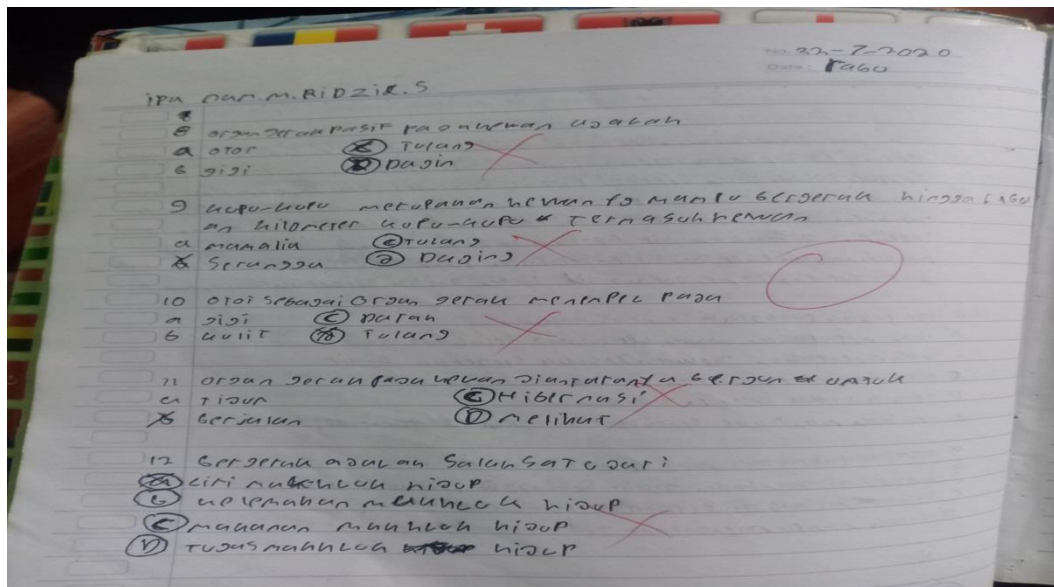 No. 22-7-2020
Date: rabu
ipa nam.M.RiDZiK.S
8 organ gerak pasif pada hewan adalah
a otot c Tulang
b gigi D Dagin
9 kupu-kupu merupakan hewan yg mampu bergerak hingga ribu
an kilometer kupu-kupu Termasuk hewan
a mamalia c Tulang
b Serangga D Daging
10 otot sebagai organ gerak menempel pada
a gigi c Darah
b kulit D Tulang
11 organ gerak pada hewan diantaranya bergun untuk
a Tidur C Hibernasi
b berjalan D melihat
12 bergerak adalah Salah Satu dari
a ciri makhluk hidup
b kelemahan makhluk hidup
c makanan makhluk hidup
D Tugas makhluk hidup